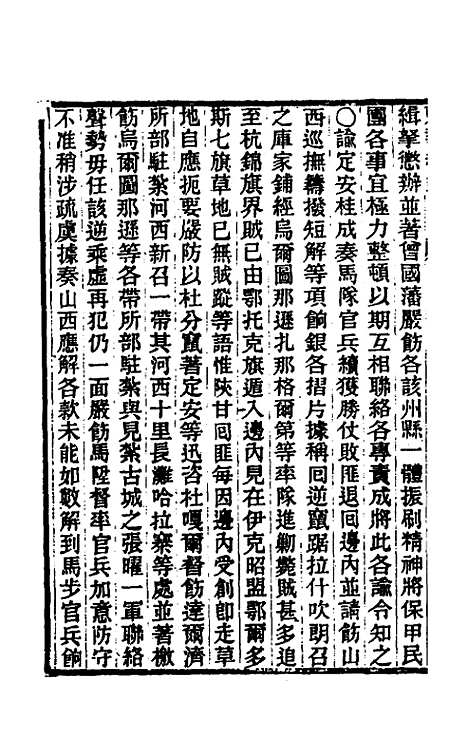 緝拏懲辦並著曾國藩嚴飭各該州縣一體振刷精神將保甲民
團各事宜極力整頓以期互相聯絡各專責成將此各諭令知之
○諭定安桂成奏馬隊官兵續獲勝仗敗匪退回邊內並請飭山
西巡撫籌撥短解等項餉銀各摺片據稱回逆竄踞拉什吹朗召
之庫家鋪經烏爾圖那遜扎那格爾第等率隊進勦斃賊甚多追
至杭錦旗界賊已由鄂托克旗遁入邊內見在伊克昭盟鄂爾多
斯七旗草地已無賊蹤等語惟陝甘回匪每因邊內受創卽走草
地自應扼要嚴防以杜分竄著定安等迅咨杜嘎爾督飭達爾濟
所部駐紮河西新召一帶其河西十里長灘哈拉寨等處並著檄
飭烏爾圖那遜等各帶所部駐紮與見紮古城之張曜一軍聯絡
聲勢毋任該逆乘虛再犯仍一面嚴飭馬陞督率官兵加意防守
不准稍涉疏虞據奏山西應解各款未能如數解到馬步官兵餉